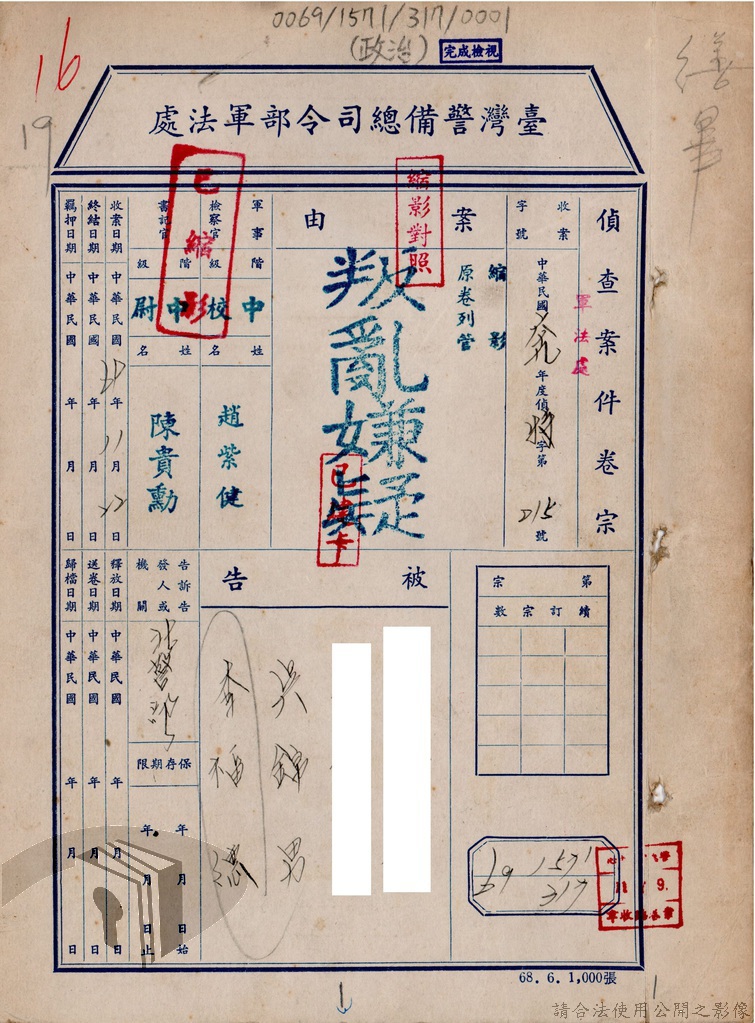 0069/1571/317/0001
(政治)
完成檢視
16
19
臺灣警備總司令部軍法處
偵查案件卷宗
軍法處
收案字號
中華民國 年度偵 字第 215 號
案由
縮影
原卷列管
縮影對照
叛亂嫌疑
已 卡
軍事檢察官
階級
中校
姓名
趙紫健
書記官
階級
中尉
姓名
陳貴勳
已縮影
收案日期 中華民國 年 11 月 22 日
終結日期 中華民國 年 月 日
羈押日期 中華民國 年 月 日
第 宗
續訂宗數
被告
吳錦男
李福
告訴告發人或機關
保存期限
年 月 日始
年 月 日止
釋放日期 中華民國 年 月 日
送卷日期 中華民國 年 月 日
歸檔日期 中華民國 年 月 日
69 1571
317
68. 6. 1,000張
請合法使用公開之影像